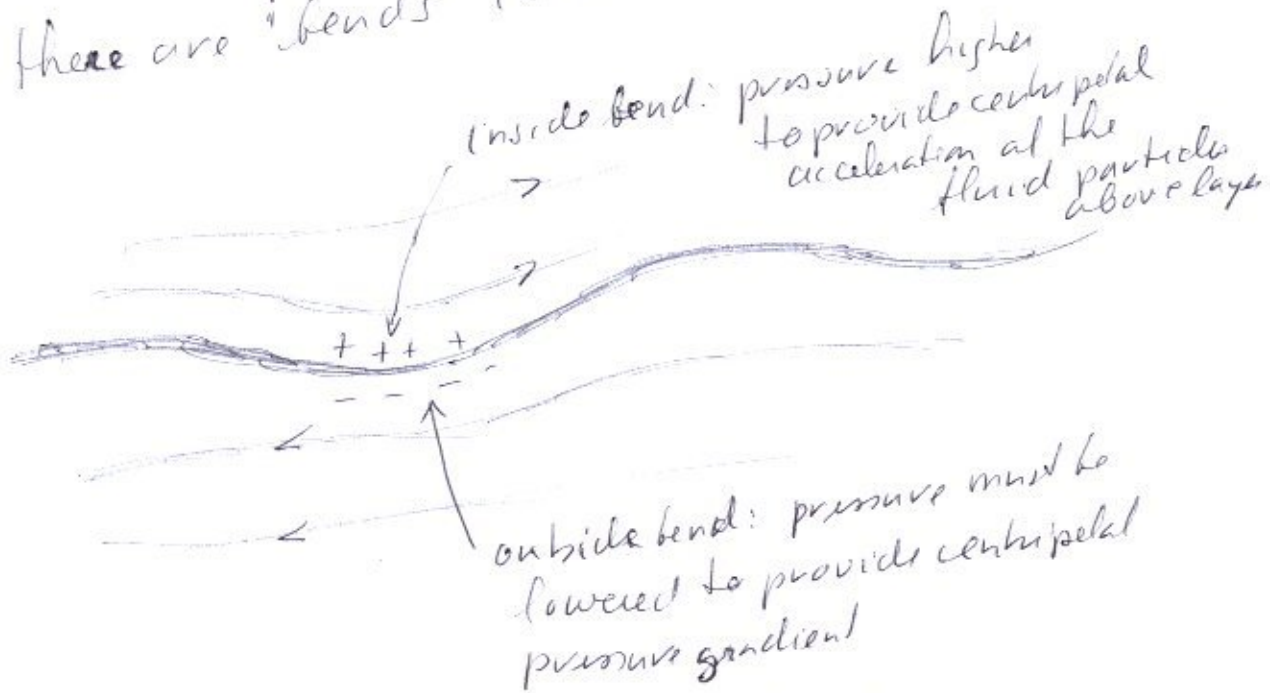 there are "bends"
inside bend: pressure higher
to provide centripetal
acceleration of the
fluid particles
above layer
+ + + +
- - - -
outside bend: pressure must be
lowered to provide centripetal
pressure gradient